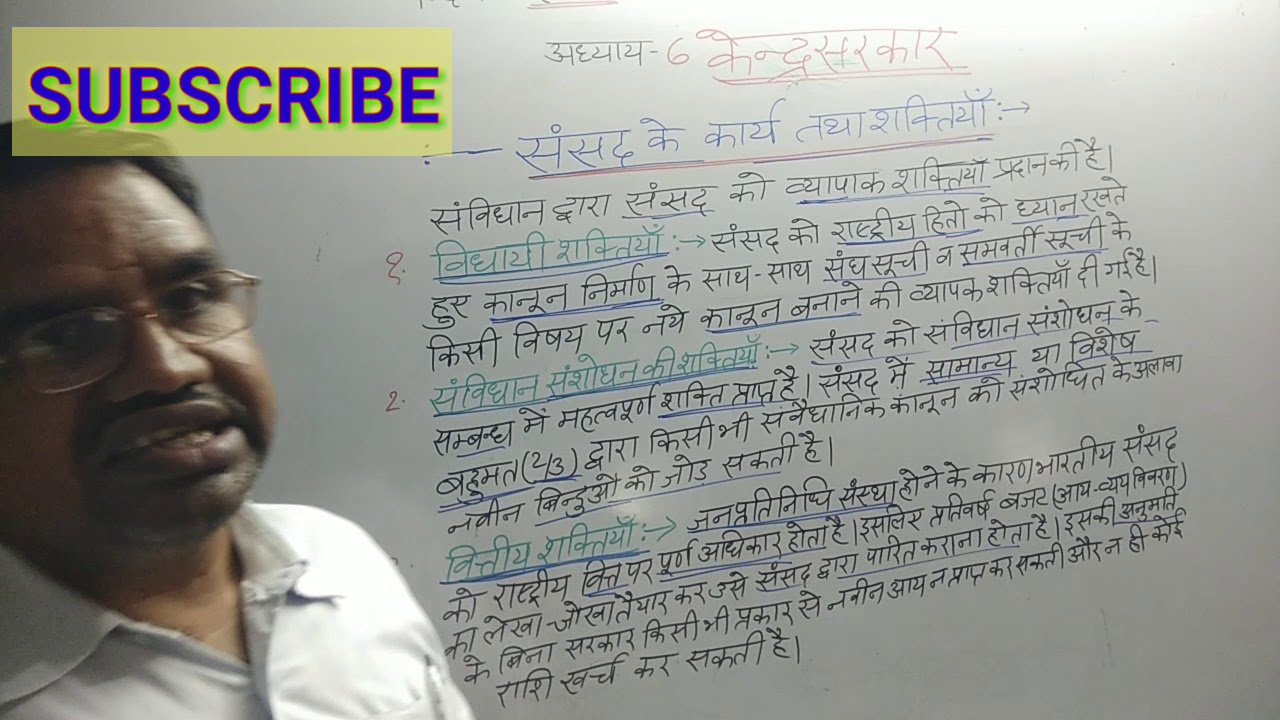 SUBSCRIBE
अध्याय-6 केन्द्रसरकार
:— संसद के कार्य तथा शक्तियाँ :→
संविधान द्वारा संसद को व्यापाक शक्तियाँ प्रदान की है।
१. विधायी शक्तियाँ :→ संसद को राष्ट्रीय हितो को ध्यान रखते
हुए कानून निर्माण के साथ-साथ संघ सूची व समवर्ती सूची के
किसी विषय पर नये कानून बनाने की व्यापक शक्तियाँ दी गई है।
2. संविधान संशोधन की शक्तियाँ :→ संसद को संविधान संशोधन के
सम्बन्ध में महत्वपूर्ण शक्ति प्राप्त है। संसद में सामान्य या विशेष
बहुमत (2/3) द्वारा किसी भी संवैधानिक कानून को संशोधित के अलावा
नवीन बिन्दुओं को जोड सकती है।
वित्तीय शक्तियाँ :→ जनप्रतिनिधि संस्था होने के कारण भारतीय संसद
को राष्ट्रीय वित्त पर पूर्ण अधिकार होता है। इसलिए प्रतिवर्ष बजट (आय-व्यय विवरण)
का लेखा-जोखा तैयार कर उसे संसद द्वारा पारित कराना होता है। इसकी अनुमति
के बिना सरकार किसी भी प्रकार से नवीन आय न प्राप्त कर सकती और न ही कोई
राशि खर्च कर सकती है।